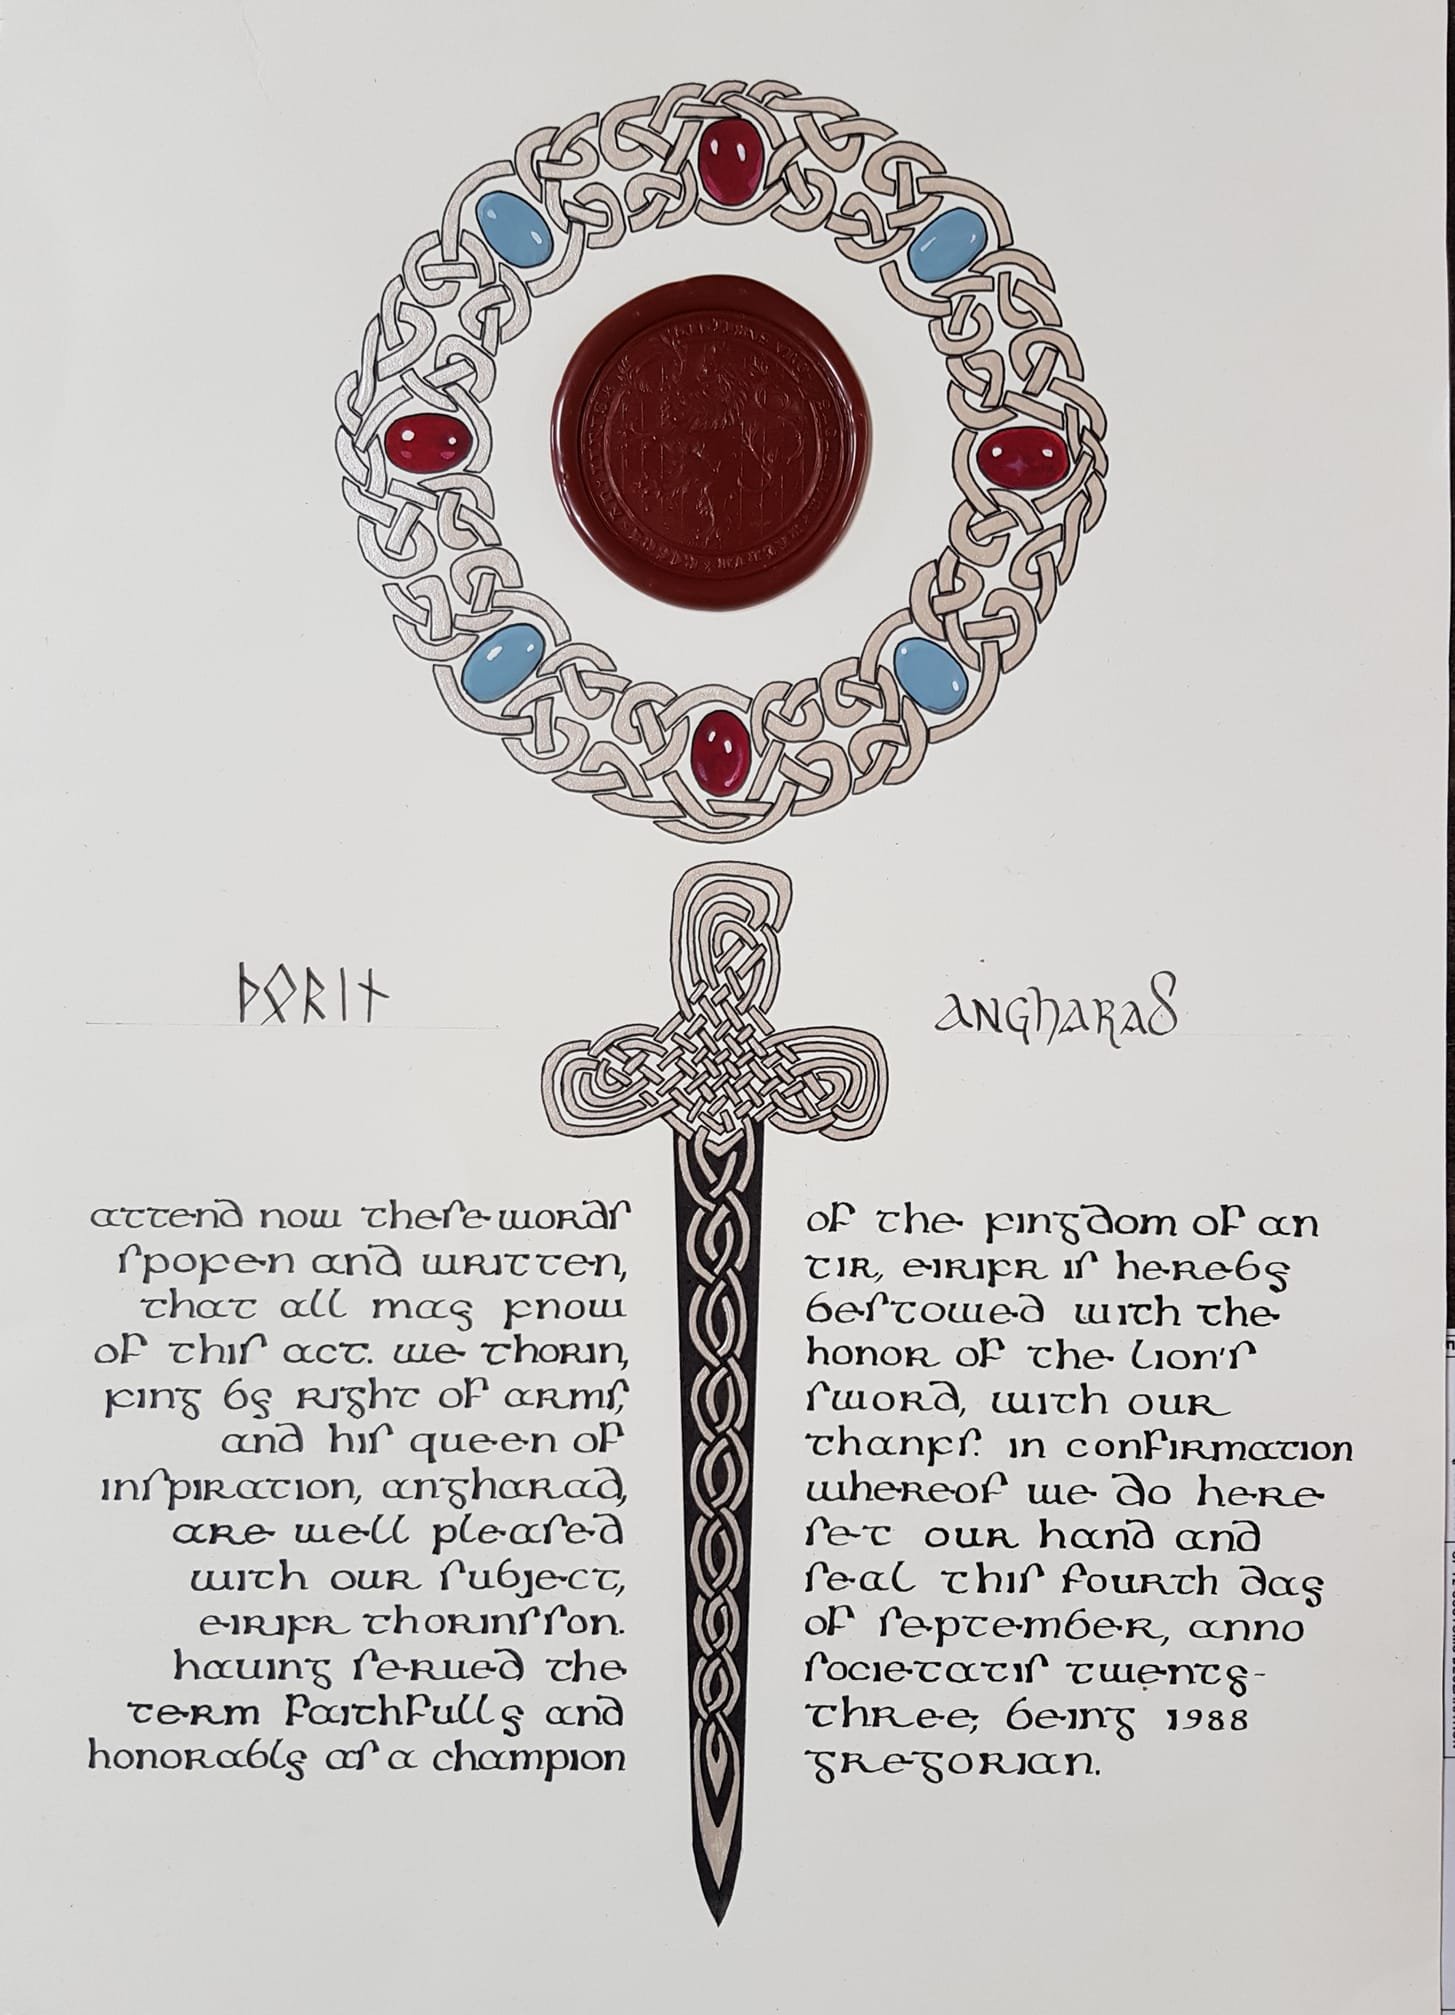 ÞORIN
ANGHARAD
attend now these words
spoken and written,
that all may know
of this act. we thorin,
king by right of arms,
and his queen of
inspiration, angharad,
are well pleased
with our subject,
eirikr thorinsson.
having served the
term faithfully and
honorably as a champion
of the kingdom of an
tir, eirikr is hereby
bestowed with the
honor of the lion's
sword, with our
thanks. in confirmation
whereof we do here
set our hand and
seal this fourth day
of september, anno
societatis twenty-
three; being 1988
gregorian.